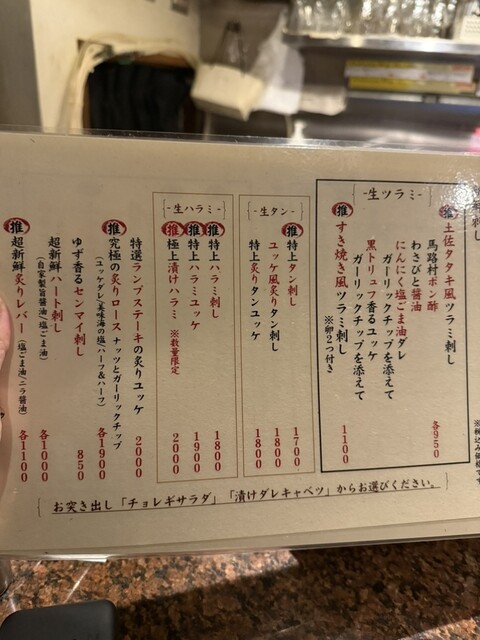 -生ツラミ-
推 土佐タタキ風ツラミ刺し
馬路村ポン酢
わさびと醤油
にんにく塩ごま油ダレ
ガーリックチップを添えて
各950
黒トリュフ香るユッケ
ガーリックチップを添えて
推 すき焼き風ツラミ刺し
※卵2つ付き
1100
-生タン-
推 特上タン刺し 1700
ユッケ風炙りタン刺し 1800
特上炙りタンユッケ 1800
-生ハラミ-
推 特上ハラミ刺し 1800
推 特上ハラミユッケ 1900
推 極上漬けハラミ ※数量限定 2000
特選ランプステーキの炙りユッケ 2000
推 究極の炙りロース ナッツとガーリックチップ
(ユッケダレ/美味海の塩/ハーフ&ハーフ) 各1900
ゆず香るセンマイ刺し 850
超新鮮ハート刺し
(自家製旨醤油/塩ごま油) 各1000
推 超新鮮炙りレバー (塩ごま油/ニラ醤油) 各1100
お突き出し「チョレギサラダ」「漬けダレキャベツ」からお選びください。